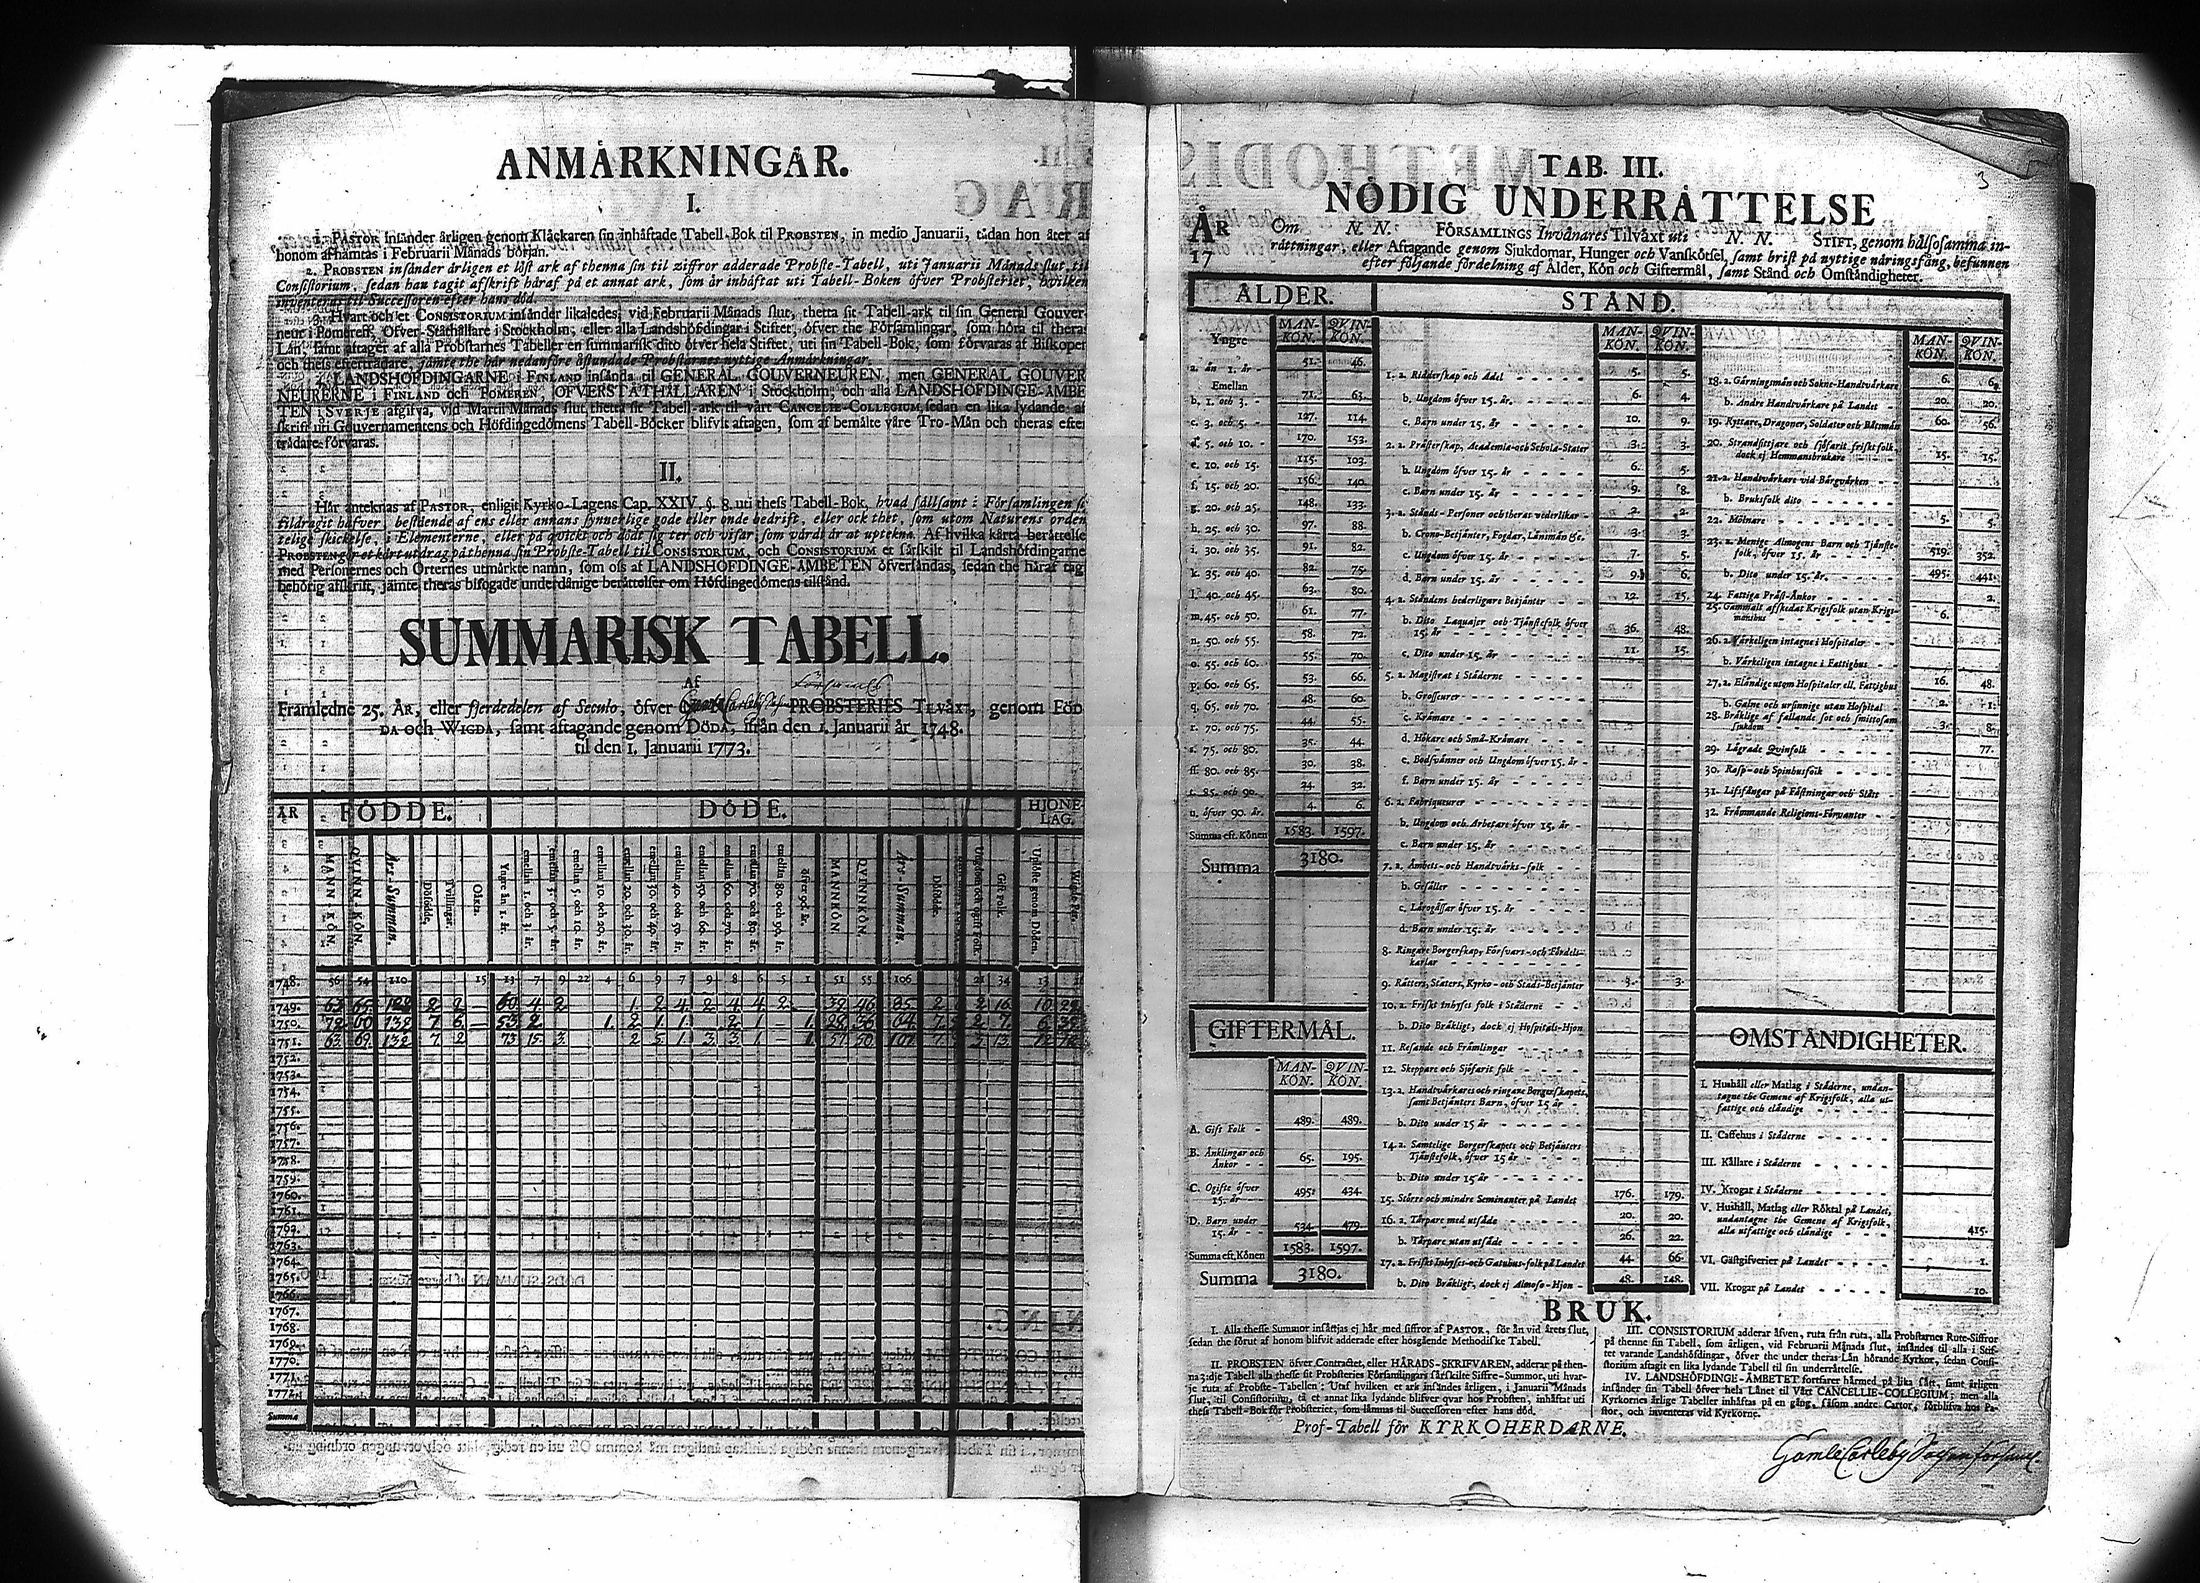 ANMÄRKNINGAR.
I.
1. PASTOR insänder årligen genom Kläckaren sin inhäftade Tabell-Bok til PROBSTEN, in medio Januarii, tädan hon åter af
honom afhämtas i Februarii Månads början.
2. PROBSTEN insänder årligen et löst ark af thenna sin til ziffror adderade Probste-Tabell, uti Januarii Månads slut, til
Consistorium, sedan han tagit afskrift häraf på et annat ark, som är inhäftat uti Tabell-Boken öfver Probsterier, hvilken
inventeras til Successoren efter hans död.
3. Hvart och et CONSISTORIUM insänder likaledes, vid Februarii Månads slut, thetta sit Tabell-ark til sin General Gouver-
neur i Pomeren, Öfver-Ståthållare i Stockholm, eller alla Landshöfdingar i Stiftet, öfver the Församlingar, som höra til theras
Län, samt aftager af alla Probstarnes Tabeller en summarisk dito öfver hela Stiftet, uti sin Tabell-Bok, som förvaras af Biskopen
och thess efterträdare, jämte the här nedanföre åstundade Probstarnes nyttige Anmärkningar.
4. LANDSHÖFDINGARNE i FINLAND insända til GENERAL GOUVERNEUREN, men GENERAL GOUVER-
NEURERNE i FINLAND och POMEREN, ÖFVERSTÅTHÅLLAREN i Stockholm, och alla LANDSHÖFDINGE-ÄMBE-
TEN i SVERJE afgifva, vid Martii Månads slut, thetta sit Tabell-ark til vårt CANCELIE-COLLEGIUM, sedan en lika lydande af-
skrift uti Gouvernamentens och Höfdingedömens Tabell-Böcker blifvit aftagen, som af bemälte våre Tro-Män och theras efter
trädare förvaras.
II.
Här anteknas af PASTOR, enligit Kyrko-Lagens Cap. XXIV. §. 8. uti thess Tabell-Bok, hvad sällsamt i Församlingen
tildragit hafver, bestående af ens eller annans synnerlige gode eller onde bedrift, eller ock thet, som utom Naturens orden-
telige skickelse, i Elementerne, eller på qvickt och dödt sig ter och visar, som värdt är at uptekna. Af hvilka kårta berättelse
PROBSTEN gör et kårt utdrag på thenna sin Probste-Tabell til CONSISTORIUM, och CONSISTORIUM et särskilt til Landshöfdingarne
med Personernes och Orternes utmärkte namn, som oss af LANDSHÖFDINGE-ÄMBETEN öfversändas, sedan the häraf tag
behörig afskrift, jämte theras bifogade underdånige berättelser om Höfdingedömens tilstånd.
SUMMARISK TABELL.
Af
Församl
Framledne 25. ÅR, eller fjerdedelen af Seculo, öfver PROBSTERIES TILVÄXT, genom FÖD-
DA och WIGDA, samt aftagande genom DÖDA, ifrån den 1. Januarii år 1748.
til den 1. Januarii 1773.
ÅR FÖDDE. DÖDE. HJONE-LAG.
MANN KÖN. QVINN. KÖN. Års-Summan. Dödfödde. Tvillingar. Oäkten. Yngre än 1. år. emellan 1. och 3. år. emellan 3. och 5. år. emellan 5. och 10. år. emellan 10. och 20. år. emellan 20. och 30. år. emellan 30. och 40. år. emellan 40. och 50. år. emellan 50. och 60. år. emellan 60. och 70. år. emellan 70. och 80. år. emellan 80. och 90. år. öfver 90. år. MANNKÖN QVINNKÖN. Års-Summan. Dödfödde. Ungdom och ogift folk. Gift Folk. Uplöste genom Döden.
1748. 56 54 110 15 13 7 9 22 4 6 9 7 9 8 6 5 1 51 55 106 21 34 13
1749. 63 65 128 2 2 60 4 2 1 2 4 2 4 4 2 39 46 85 2 2 16 10
1750. 78 60 138 7 6 53 2 1 2 1 1 2 1 1 28 36 64 7 2 7 6
1751. 63 69 132 7 2 73 15 3 2 5 1 3 3 1 1 57 50 107 7 3 13 12
1752.
1753.
1754.
1755.
1756.
1757.
1758.
1759.
1760.
1761.
1762.
1763.
1764.
1765.
1766.
1767.
1768.
1769.
1770.
1771.
1772.
Summa
3
TAB. III.
NÖDIG UNDERRÄTTELSE
ÅR 17
Om N. N. FÖRSAMLINGS Invånares Tilväxt uti N. N. STIFT, genom hälsosamma in-
rättningar, eller Aftagande genom Sjukdomar, Hunger och Vanskötsel, samt brist på nyttige näringsfång, befunnen
efter följande fördelning af Ålder, Kön och Giftermål, samt Stånd och Omständigheter.
ÅLDER.
MAN-KÖN. QVIN-KÖN.
Yngre
a. än 1. år 51. 46.
Emellan
b. 1. och 3. 71. 63.
c. 3. och 5. 127. 114.
d. 5. och 10. 170. 153.
e. 10. och 15. 115. 103.
f. 15. och 20. 156. 140.
g. 20. och 25. 148. 133.
h. 25. och 30. 97. 88.
i. 30. och 35. 91. 82.
k. 35. och 40. 82. 75.
l. 40. och 45. 63. 80.
m. 45. och 50. 61. 77.
n. 50. och 55. 58. 72.
o. 55. och 60. 55. 70.
p. 60. och 65. 53. 66.
q. 65. och 70. 48. 60.
r. 70. och 75. 44. 55.
s. 75. och 80. 35. 44.
ss. 80. och 85. 30. 38.
t. 85. och 90. 24. 32.
u. öfver 90. år. 4. 6.
Summa eft. Könen 1583. 1597.
Summa 3180.
GIFTERMÅL.
MAN-KÖN. QVIN-KÖN.
A. Gift Folk 489. 489.
B. Änklingar och Änkor 65. 195.
C. Ogifte öfver 15. år 495. 434.
D. Barn under 15. år 534. 479.
Summa eft. Könen 1583. 1597.
Summa 3180.
STÅND.
MAN-KÖN. QVIN-KÖN.
1. a. Ridderskap och Adel 5. 5.
b. Ungdom öfver 15. år. 6. 4.
c. Barn under 15. år 10. 9.
2. a. Prästerskap, Academie-och Schola-Stater 3. 3.
b. Ungdom öfver 15. år 6. 5.
c. Barn under 15. år 9. 8.
3. a. Stånds-Personer och theras vederlikar 2. 2.
b. Crono-Betjänter, Fogdar, Länsmän &c. 3. 3.
c. Ungdom öfver 15. år 7. 5.
d. Barn under 15. år 9. 6.
4. a. Ståndens hederligare Betjänter 12. 15.
b. Dito Laquajer och Tjänstefolk öfver 15. år 36. 48.
c. Dito under 15. år 11. 15.
5. a. Magistrat i Städerne
b. Grosseurer
c. Krämare
d. Hökare och Små-Krämare
e. Bodsvänner och Ungdom öfver 15. år
f. Barn under 15. år
6. a. Fabriqueurer
b. Ungdom och Arbetare öfver 15. år
c. Barn under 15. år
7. a. Ämbets- och Handtvärks-folk
b. Gesäller
c. Lärogåssar öfver 15. år
d. Barn under 15. år
8. Ringare Borgerskap, Försvars- och Fördels-karlar
9. Rätters, Staters, Kyrko- och Stads-Betjänter 3. 3.
10. a. Friskt Inhyses folk i Städerne
b. Dito Bräkligt, dock ej Hospitals-Hjon
11. Resande och Främlingar
12. Skeppare och Sjöfarit folk
13. a. Handtvärkares och ringare Borgerskapets, samt Betjänters Barn, öfver 15 år
b. Dito under 15 år
14. a. Samtelige Borgerskapets och Betjänters Tjänstefolk, öfver 15 år
b. Dito under 15 år
15. Större och mindre Seminanter på Landet 176. 179.
16. a. Torpare med utsäde 20. 20.
b. Torpare utan utsäde 26. 22.
17. a. Friskt Inhyses-och Gatuhus-folk på Landet 44. 66.
b. Dito Bräkligt, dock ej Almoso-Hjon 48. 148.
MAN-KÖN. QVIN-KÖN.
18. a. Gärningsmän och Sokne-Handtvärkare 6. 6.
b. Andre Handtvärkare på Landet 20. 20.
19. Ryttare, Dragoner, Soldater och Båtsmän 60. 56.
20. Strandsittjare och sjöfarit friskt folk, dock ej Hemmansbrukare 15. 15.
21. a. Handtvärkare vid Bärgvärken
b. Bruksfolk dito
22. Mölnare 5. 5.
23. a. Menige Almogens Barn och Tjänste-folk, öfver 15. år 519. 352.
b. Dito under 15. år. 495. 441.
24. Fattiga Präst-Änkor 2.
25. Gammalt afskedat Krigsfolk utan Krigsmanshus 6.
26. a. Värkeligen intagne i Hospitaler
b. Värkeligen intagne i Fattighus
27. a. Eländige utom Hospitaler ell. Fattighus 16. 48.
b. Galne och ursinnige utan Hospital 2. 1.
28. Bräklige af fallande sot och smittosam sjukdom 3. 8.
29. Lägrade Qvinfolk 77.
30. Rasp- och Spinhusfolk
31. Lifsfångar på Fästningar och Slått
32. Främmande Religions-Förvanter
OMSTÄNDIGHETER.
I. Hushåll eller Matlag i Städerne, undan-
tagne the Gemene af Krigsfolk, alla ut-
fattige och eländige
II. Caffehus i Städerne
III. Källare i Städerne
IV. Krogar i Städerne
V. Hushåll, Matlag eller Röktal på Landet,
undantagne the Gemene af Krigsfolk,
alla utfattige och eländige 415.
VI. Gästgifverier på Landet 1.
VII. Krogar på Landet 10.
BRUK.
I. Alla thesse Summor insättjas ej här med siffror af PASTOR, för än vid årets slut,
sedan the förut af honom blifvit adderade efter högående Methodiske Tabell.
II. PROBSTEN öfver Contractet, eller HÄRADS-SKRIFVAREN, adderar på then-
na 3:dje Tabell alla thesse sit Probsteries Församlingars särskilte Siffre-Summor, uti hvar-
je ruta af Probste-Tabellen: Utaf hvilken et ark insändes årligen, i Januarii Månads
slut, til Consistorium, tå et annat lika lydande blifver qvar hos Probsten, inhäftat uti
thess Tabell-Bok för Probsteriet, som lämnas til Successoren efter hans död.
III. CONSISTORIUM adderar äfven, ruta från ruta, alla Probstarnes Rute-Siffror
på thenne sin Tabell, som årligen, vid Februarii Månads slut, insändes til alla i Stif-
tet varande Landshöfdingar, öfver the under theras Län hörande Kyrkor, sedan Consi-
storium aftagit en lika lydande Tabell til sin underrättelse.
IV. LANDSHÖFDINGE-ÄMBETET fortfarer härmed på lika sätt, samt årligen
insänder sin Tabell öfver hela Länet til Vårt CANCELLIE-COLLEGIUM; men alla
Kyrkornes årlige Tabeller inhäftas på en gång, såsom andre Cartor, förblifva hos Pa-
stor, och inventeras vid Kyrkorne.
Prof-Tabell för KYRKOHERDARNE.
GamleCarleby Sokne församl.